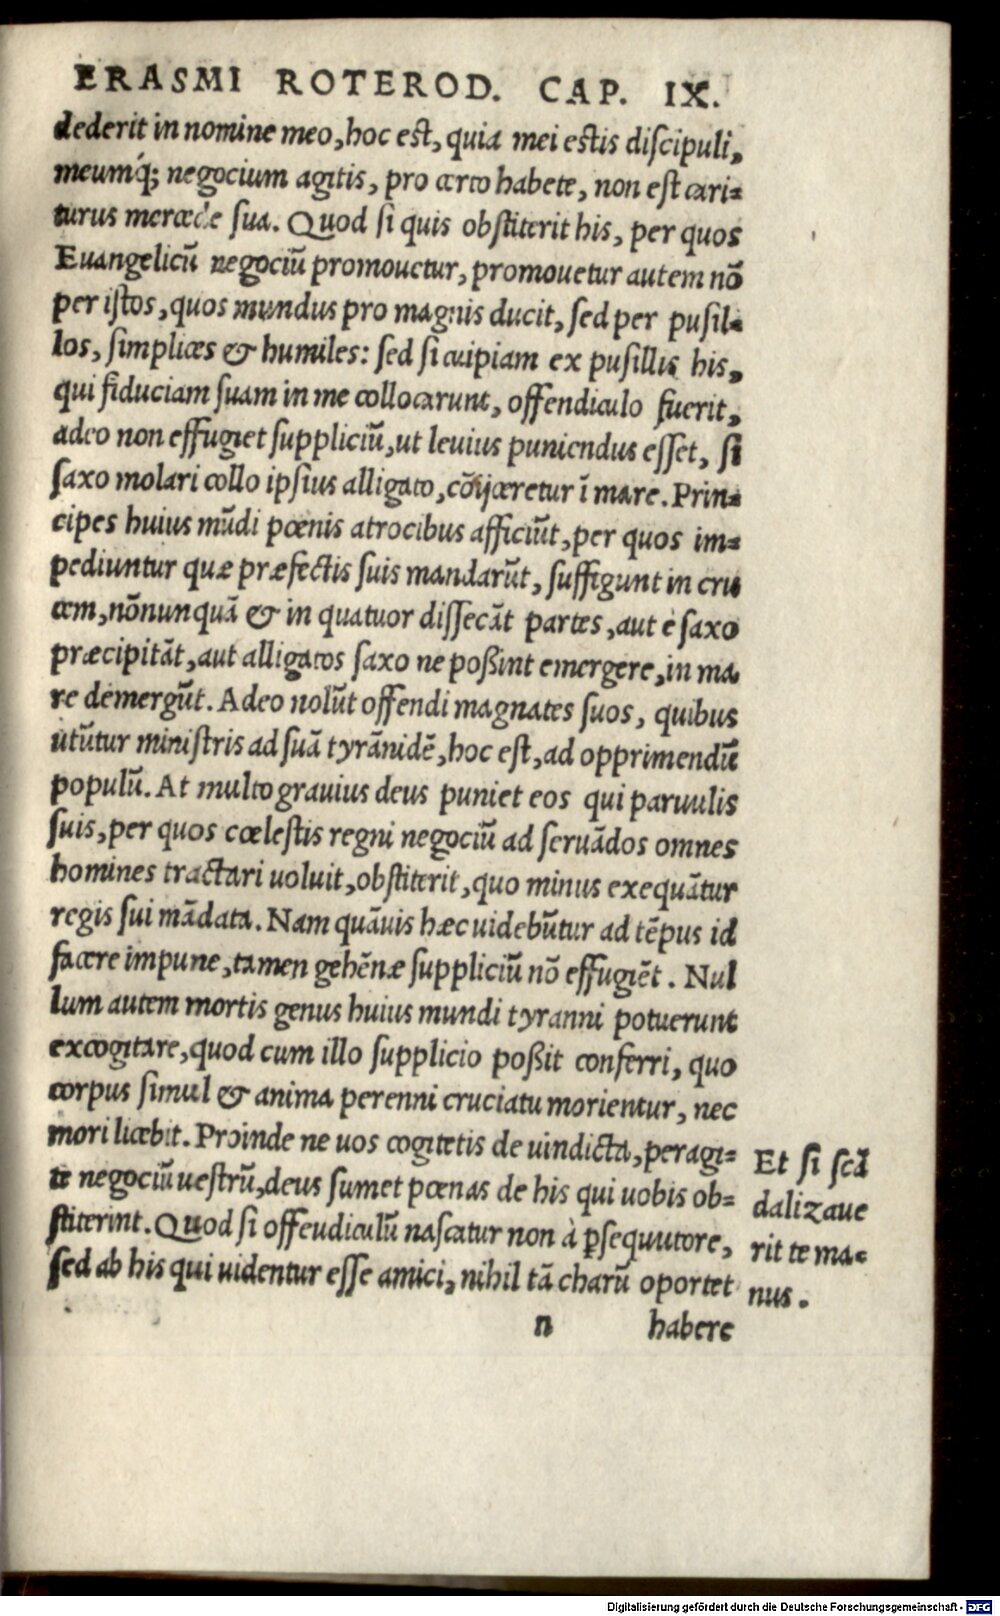 ERASMI ROTEROD. CAP. IX.
dederit in nomine meo, hoc eſt, quia mei eſtis diſcipuli,
meumq́; negocium agitis, pro certo habete, non eſt cari-
turus mercede ſua. Quod ſi quis obſtiterit his, per quos
Euangelicū negociū promouetur, promouetur autem nō
per iſtos, quos mundus pro magnis ducit, ſed per puſil-
los, ſimplices & humiles: ſed ſi cuipiam ex puſillis his,
qui fiduciam ſuam in me collocarunt, offendiculo fuerit,
adeo non effugiet ſuppliciū, ut leuius puniendus eſſet, ſi
ſaxo molari collo ipſius alligato, cōijceretur ī mare. Prin-
cipes huius mūdi pœnis atrocibus afficiūt, per quos im-
pediuntur quæ præfectis ſuis mandarūt, ſuffigunt in cru
cem, nōnunquā & in quatuor diſſecāt partes, aut è ſaxo
præcipitāt, aut alligatos ſaxo ne poßint emergere, in ma
re demergūt. Adeo nolūt offendi magnates ſuos, quibus
utūtur miniſtris ad ſuā tyrānidē, hoc eſt, ad opprimendū
populū. At multo grauius deus puniet eos qui paruulis
ſuis, per quos cœleſtis regni negociū ad ſeruādos omnes
homines tractari uoluit, obſtiterit, quo minus exequātur
regis ſui mādata. Nam quāuis hæc uidebūtur ad tēpus id
facere impune, tamen gehēnæ ſuppliciū nō effugiēt. Nul
lum autem mortis genus huius mundi tyranni potuerunt
excogitare, quod cum illo ſupplicio poßit conferri, quo
corpus ſimul & anima perenni cruciatu morientur, nec
mori licebit. Proinde ne uos cogitetis de uindicta, peragi-
te negociū ueſtrū, deus ſumet pœnas de his qui uobis ob-
ſtiterint. Quod ſi offendiculū naſcatur non à ꝑſequutore,
ſed ab his qui uidentur eſſe amici, nihil tā charū oportet
Et ſi ſcā
dalizaue
rit te ma-
nus.
n habere
Digitalisierung gefördert durch die Deutsche Forschungsgemeinschaft - DFG